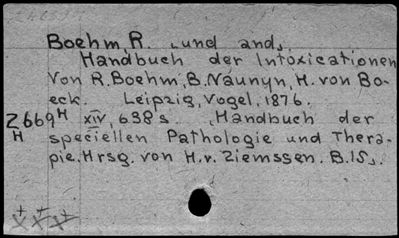 Boehm, R. „und and."
Handbuch der Intoxicationen
Von R. Boehm, B. Naunyn, H. von Bo-
eck. Leipzig, Vogel, 1876.
2669H XIV, 638 s. „Handbuch der
H speciellen Pathologie und Thera-
pie. Hrsg. von H. v. Ziemssen. B. 15„.